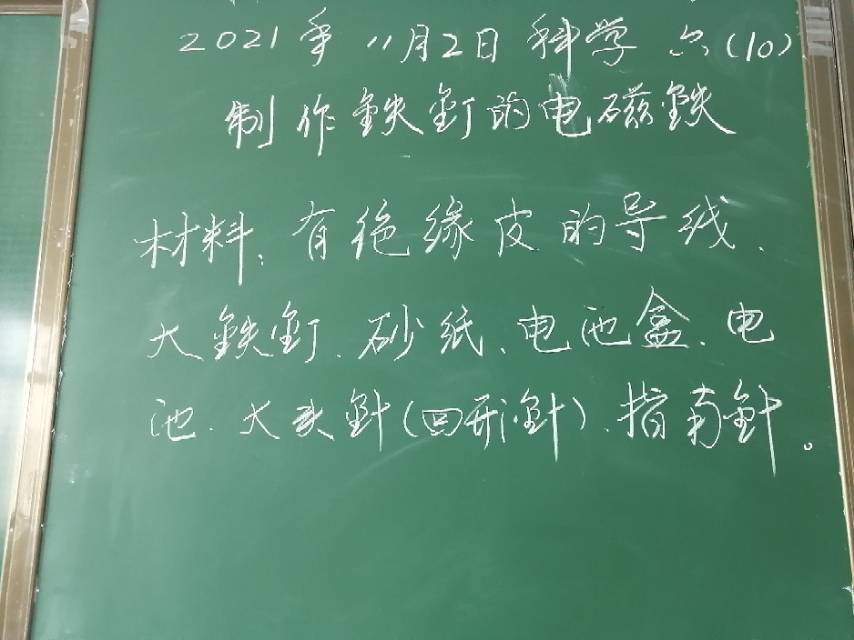 2021年11月2日 科学 六(10)
制作鉄釘的电磁鉄
材料、有绝缘皮的导线、
大鉄釘、砂纸、电池盒、电
池、大头針(回形針)、指南針。